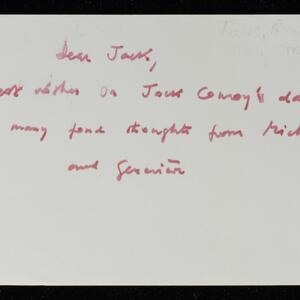 Dear Jack,
wishes on Jack Conroy's da
many fond thoughts from Mich
and Geneviève